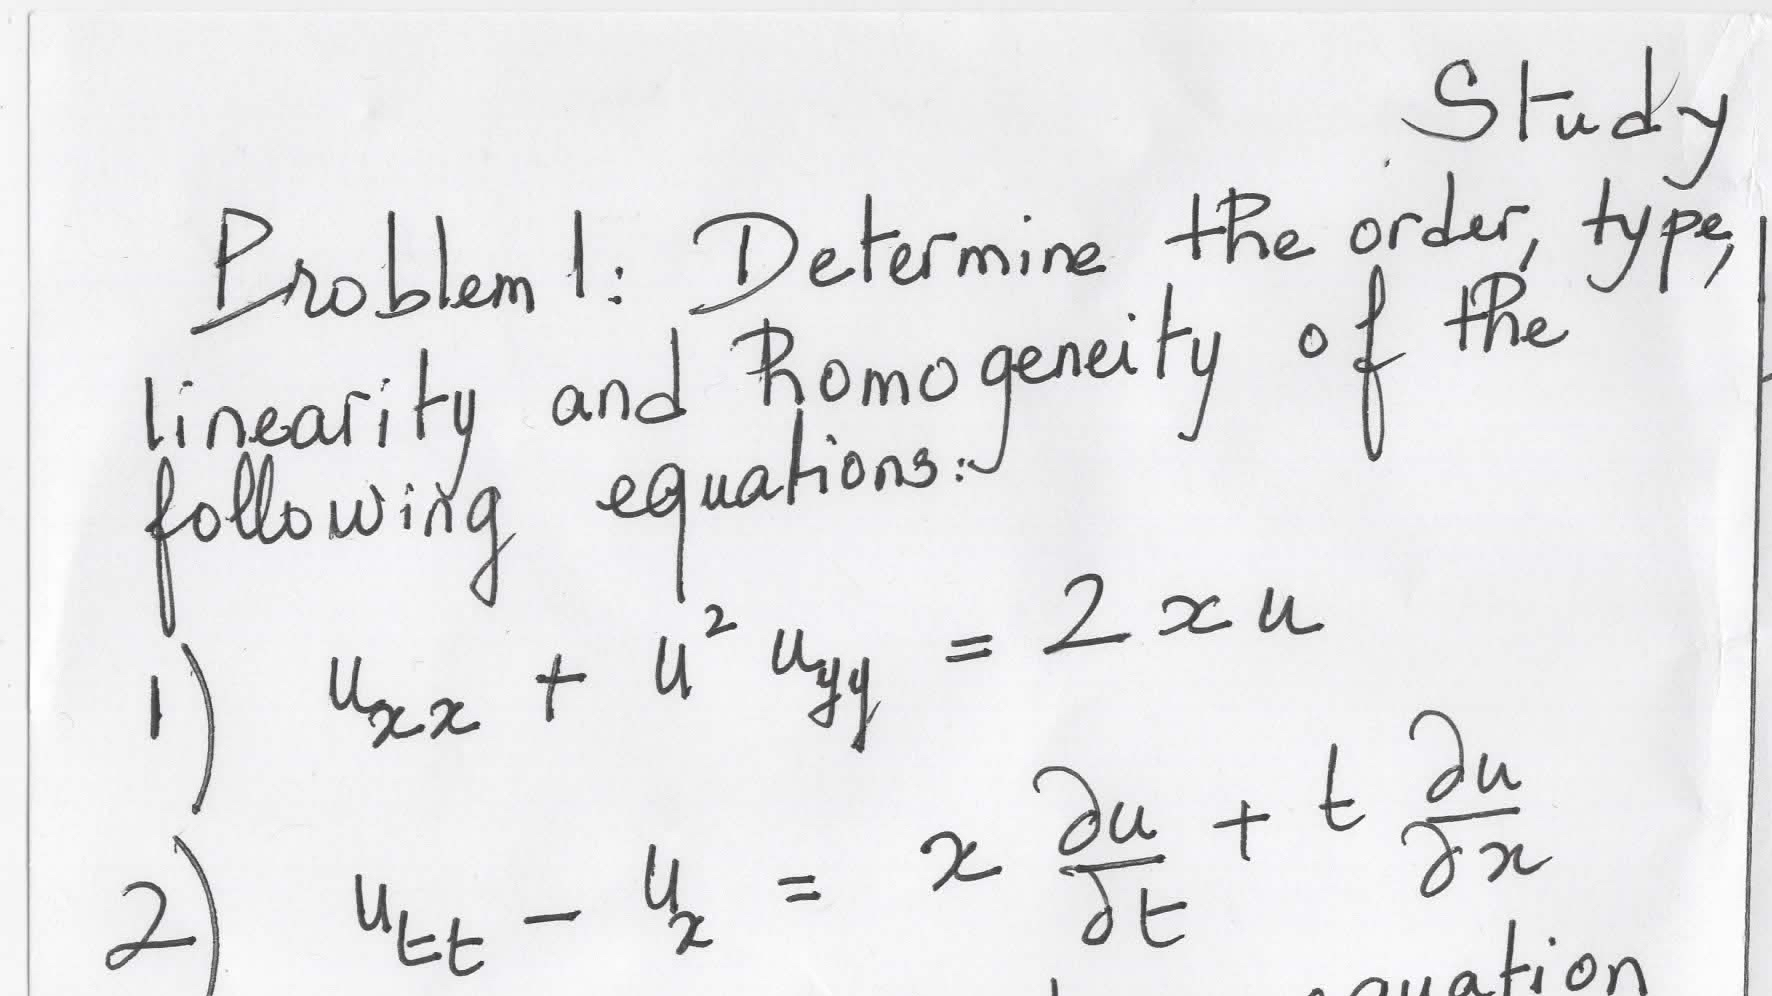 Study
Problem 1: Determine the order, type,
linearity and homogeneity of the
following equations:
1) u_xx + u² u_yy = 2xu
2) u_tt - u_x = x ∂u/∂t + t ∂u/∂x
equation